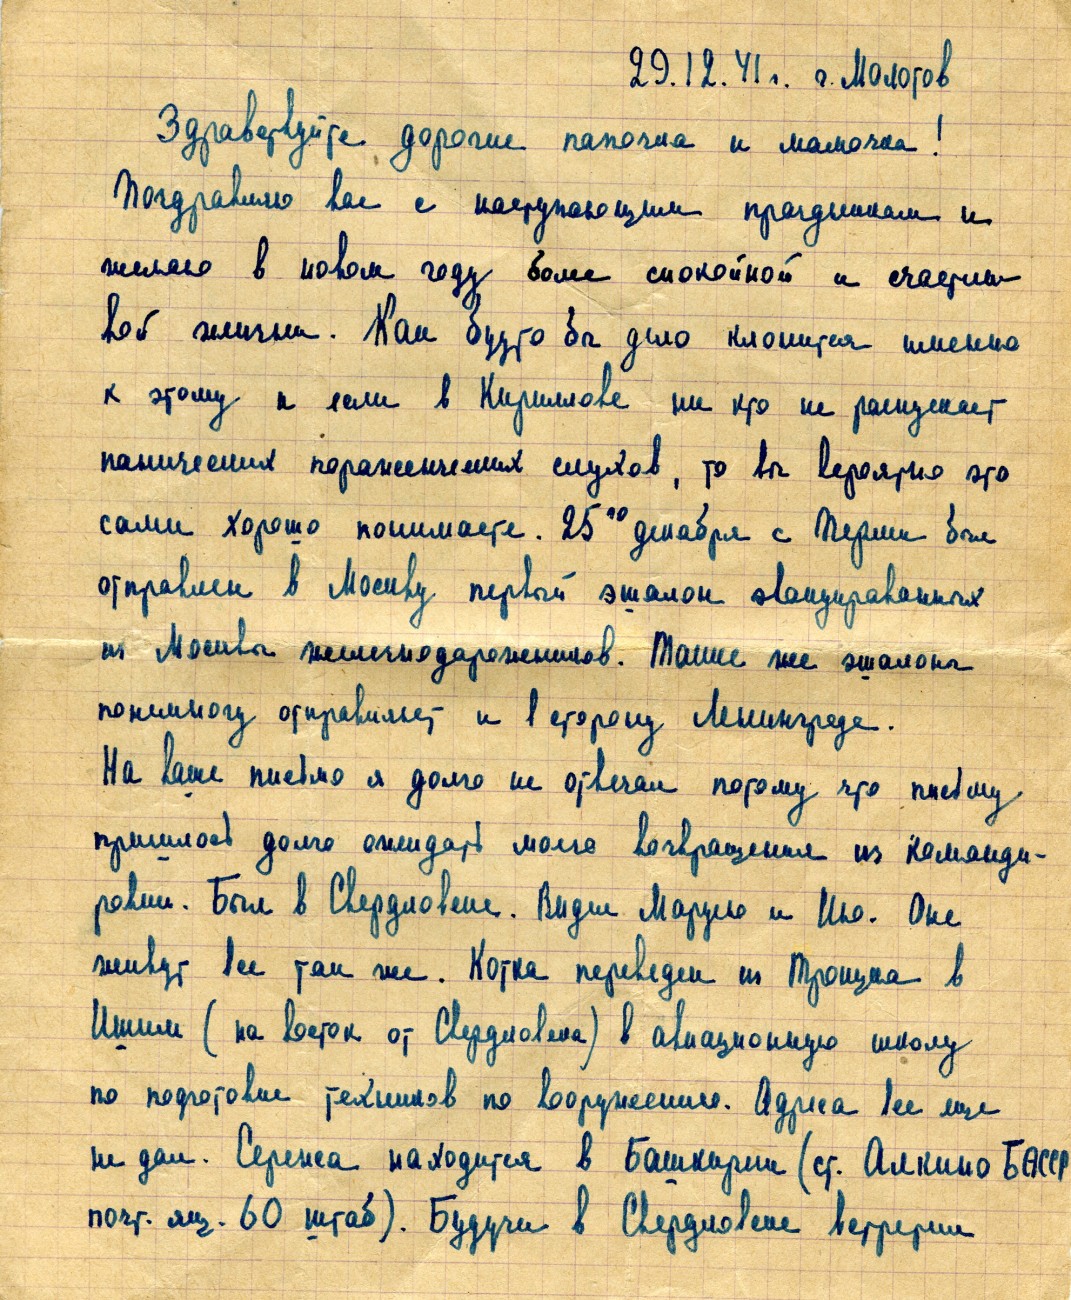 29.12.41 г. г. Молотов
Здравствуйте дорогие папочка и мамочка!
Поздравляю вас с наступающим праздником и
желаю в новом году более спокойной и счастли
вой жизни. Как будто бы дело клонится именно
к этому и если в Кириллове ни кто не распускает
панических пораженческих слухов, то вы вероятно это
сами хорошо понимаете. 25го декабря с Перми был
отправлен в Москву первый эшалон эвакуированных
из Москвы железнодарожников. Такие же эшалоны
понемногу отправляют и в сторону Ленинграда.
На ваше письмо я долго не отвечал потому что письму
пришлось долго ожидать моего возвращения из команди-
ровки. Был в Свердловске. Видел Марусю и Ию. Оне
живут все так же. Котка переведен из Троицка в
Ишим (на восток от Свердловска) в авиационную школу
по подготовке техников по вооружению. Адреса все еще
не дал. Сережа находится в Башкирии (ст. Алкино БАССР
почт. ящ. 60 штаб). Будучи в Свердловске встретил